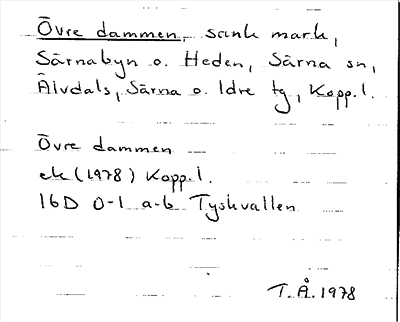 Övre dammen, sank mark,
Särnabyn o. Heden, Särna sn,
Älvdals, Särna o. Idre tg, Kopp.l.
Övre dammen
ek (1978) Kopp.l.
16D 0-1 a-b Tyskvallen
T.Å.1978